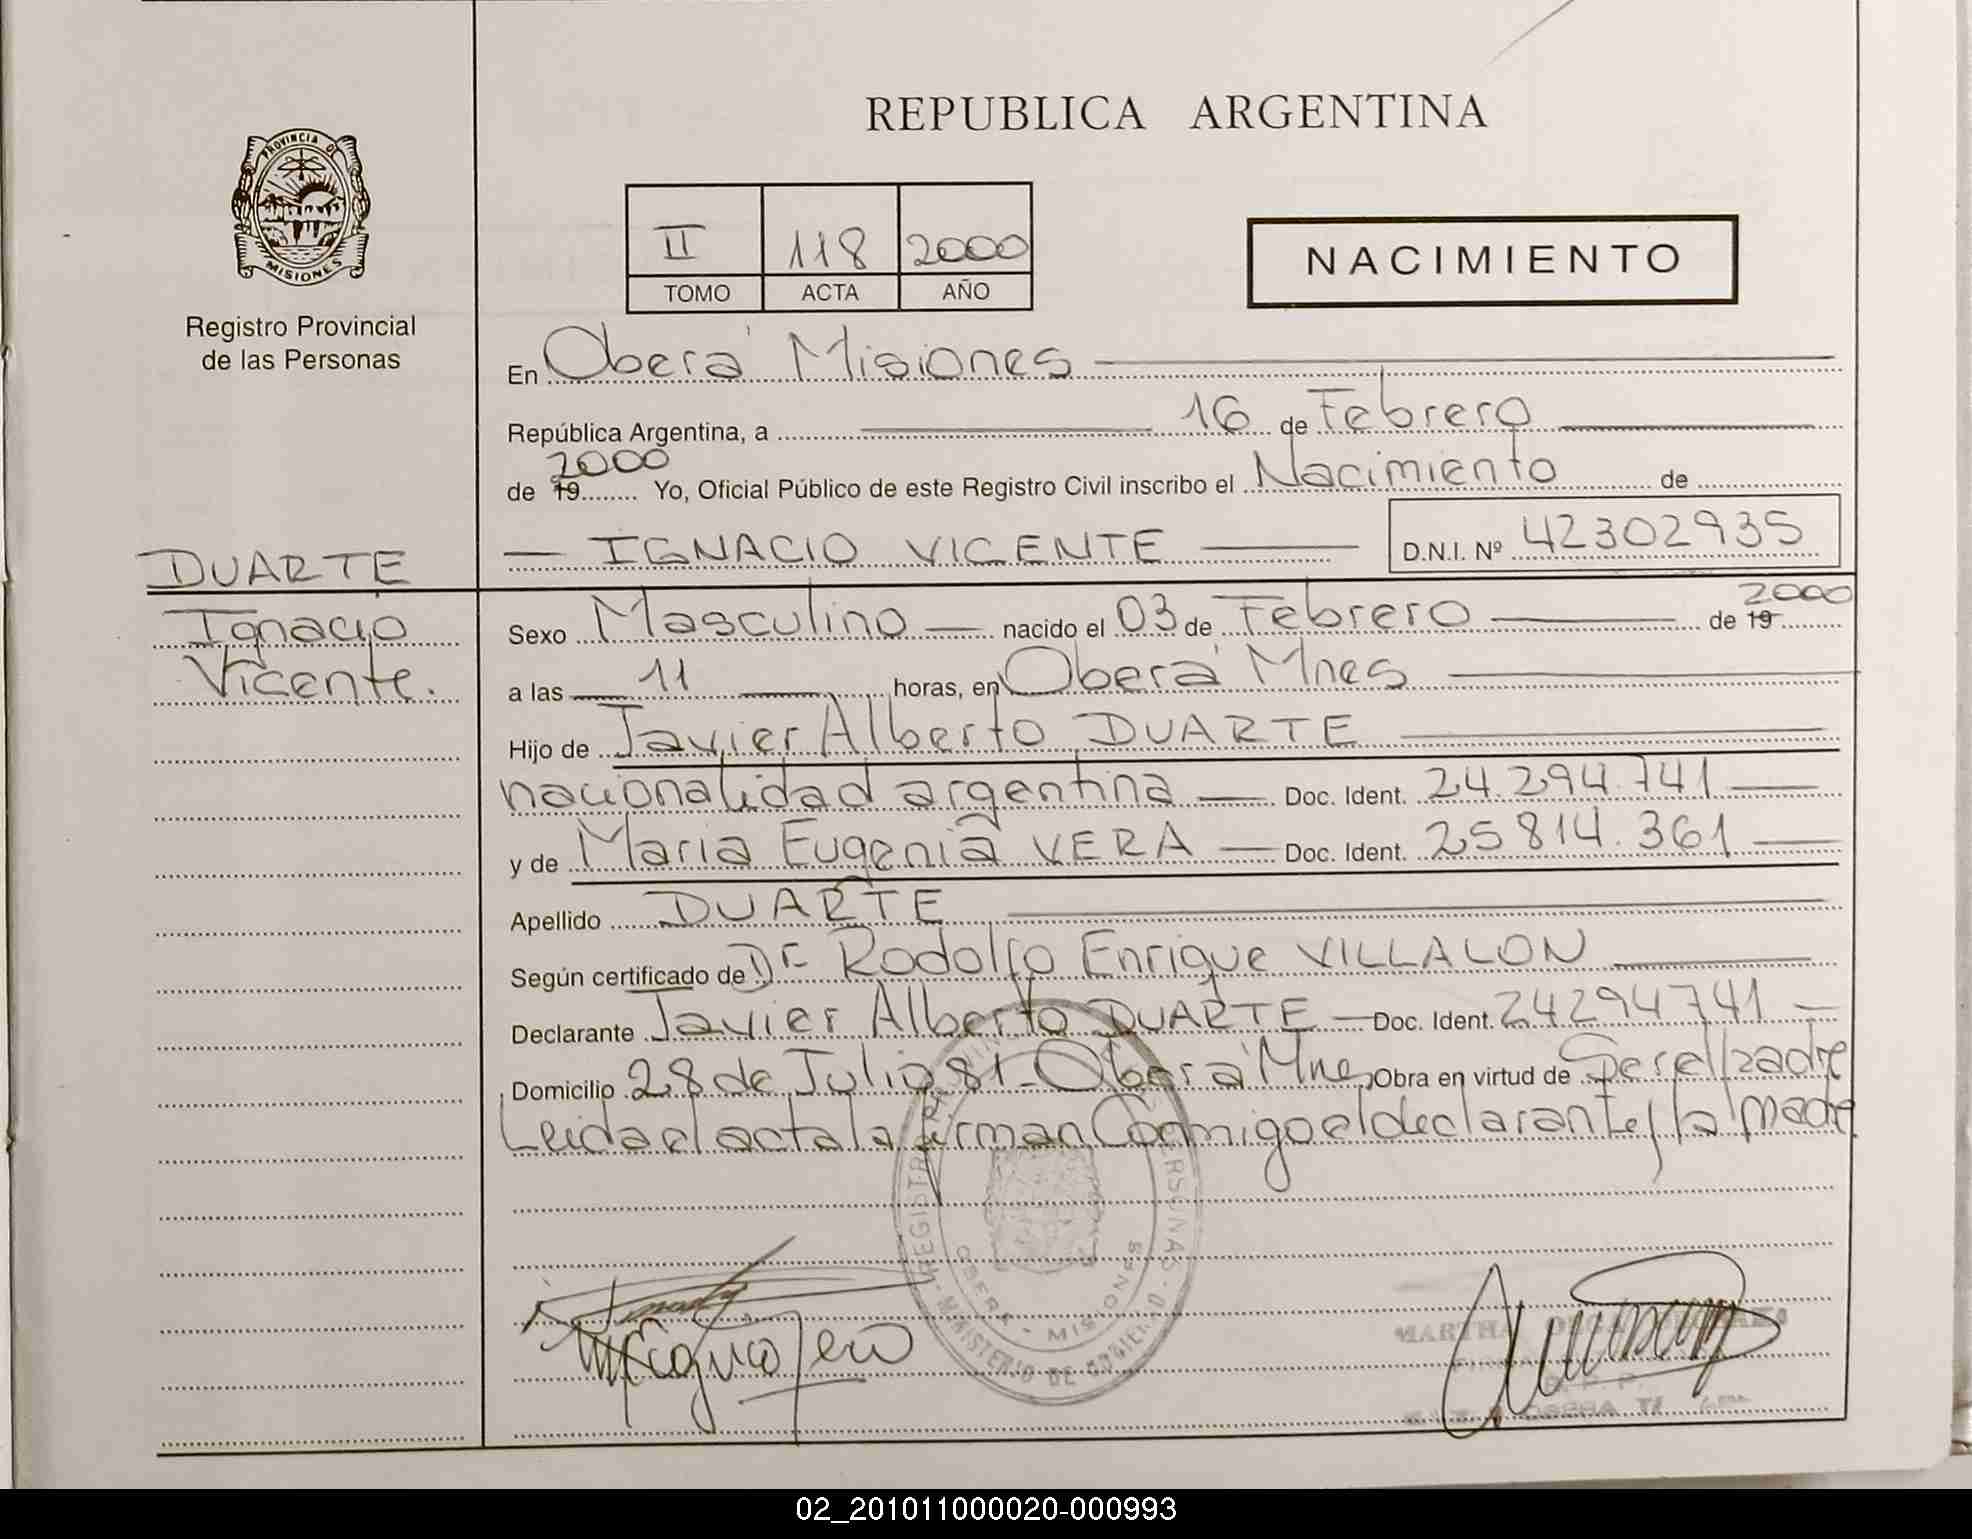 REPUBLICA ARGENTINA
PROVINCIA DE
MISIONES
Registro Provincial
de las Personas
II 118 2000
TOMO ACTA AÑO
NACIMIENTO
En Oberá Misiones
República Argentina, a 16 de Febrero
2000
de 19 Yo, Oficial Público de este Registro Civil inscribo el Nacimiento de
IGNACIO VICENTE D.N.I. Nº 42302935
DUARTE
Ignacio
Vicente.
Sexo Masculino nacido el 03 de Febrero de 19 2000
a las 11 horas, en Oberá Mnes
Hijo de Javier Alberto DUARTE
nacionalidad argentina Doc. Ident. 24.294.741
y de Maria Eugenia VERA Doc. Ident. 25814.361
Apellido DUARTE
Según certificado de Dr Rodolfo Enrique VILLALON
Declarante Javier Alberto DUARTE Doc. Ident. 24294741
Domicilio 28 de Julio 81 - Oberá Mnes Obra en virtud de Ser el padre
Leida el acta la firman Conmigo el declarante y la madre
OBERA - MISIONES
MINISTERIO DE GOBIERNO
MARTHA OLGA
02_201011000020-000993